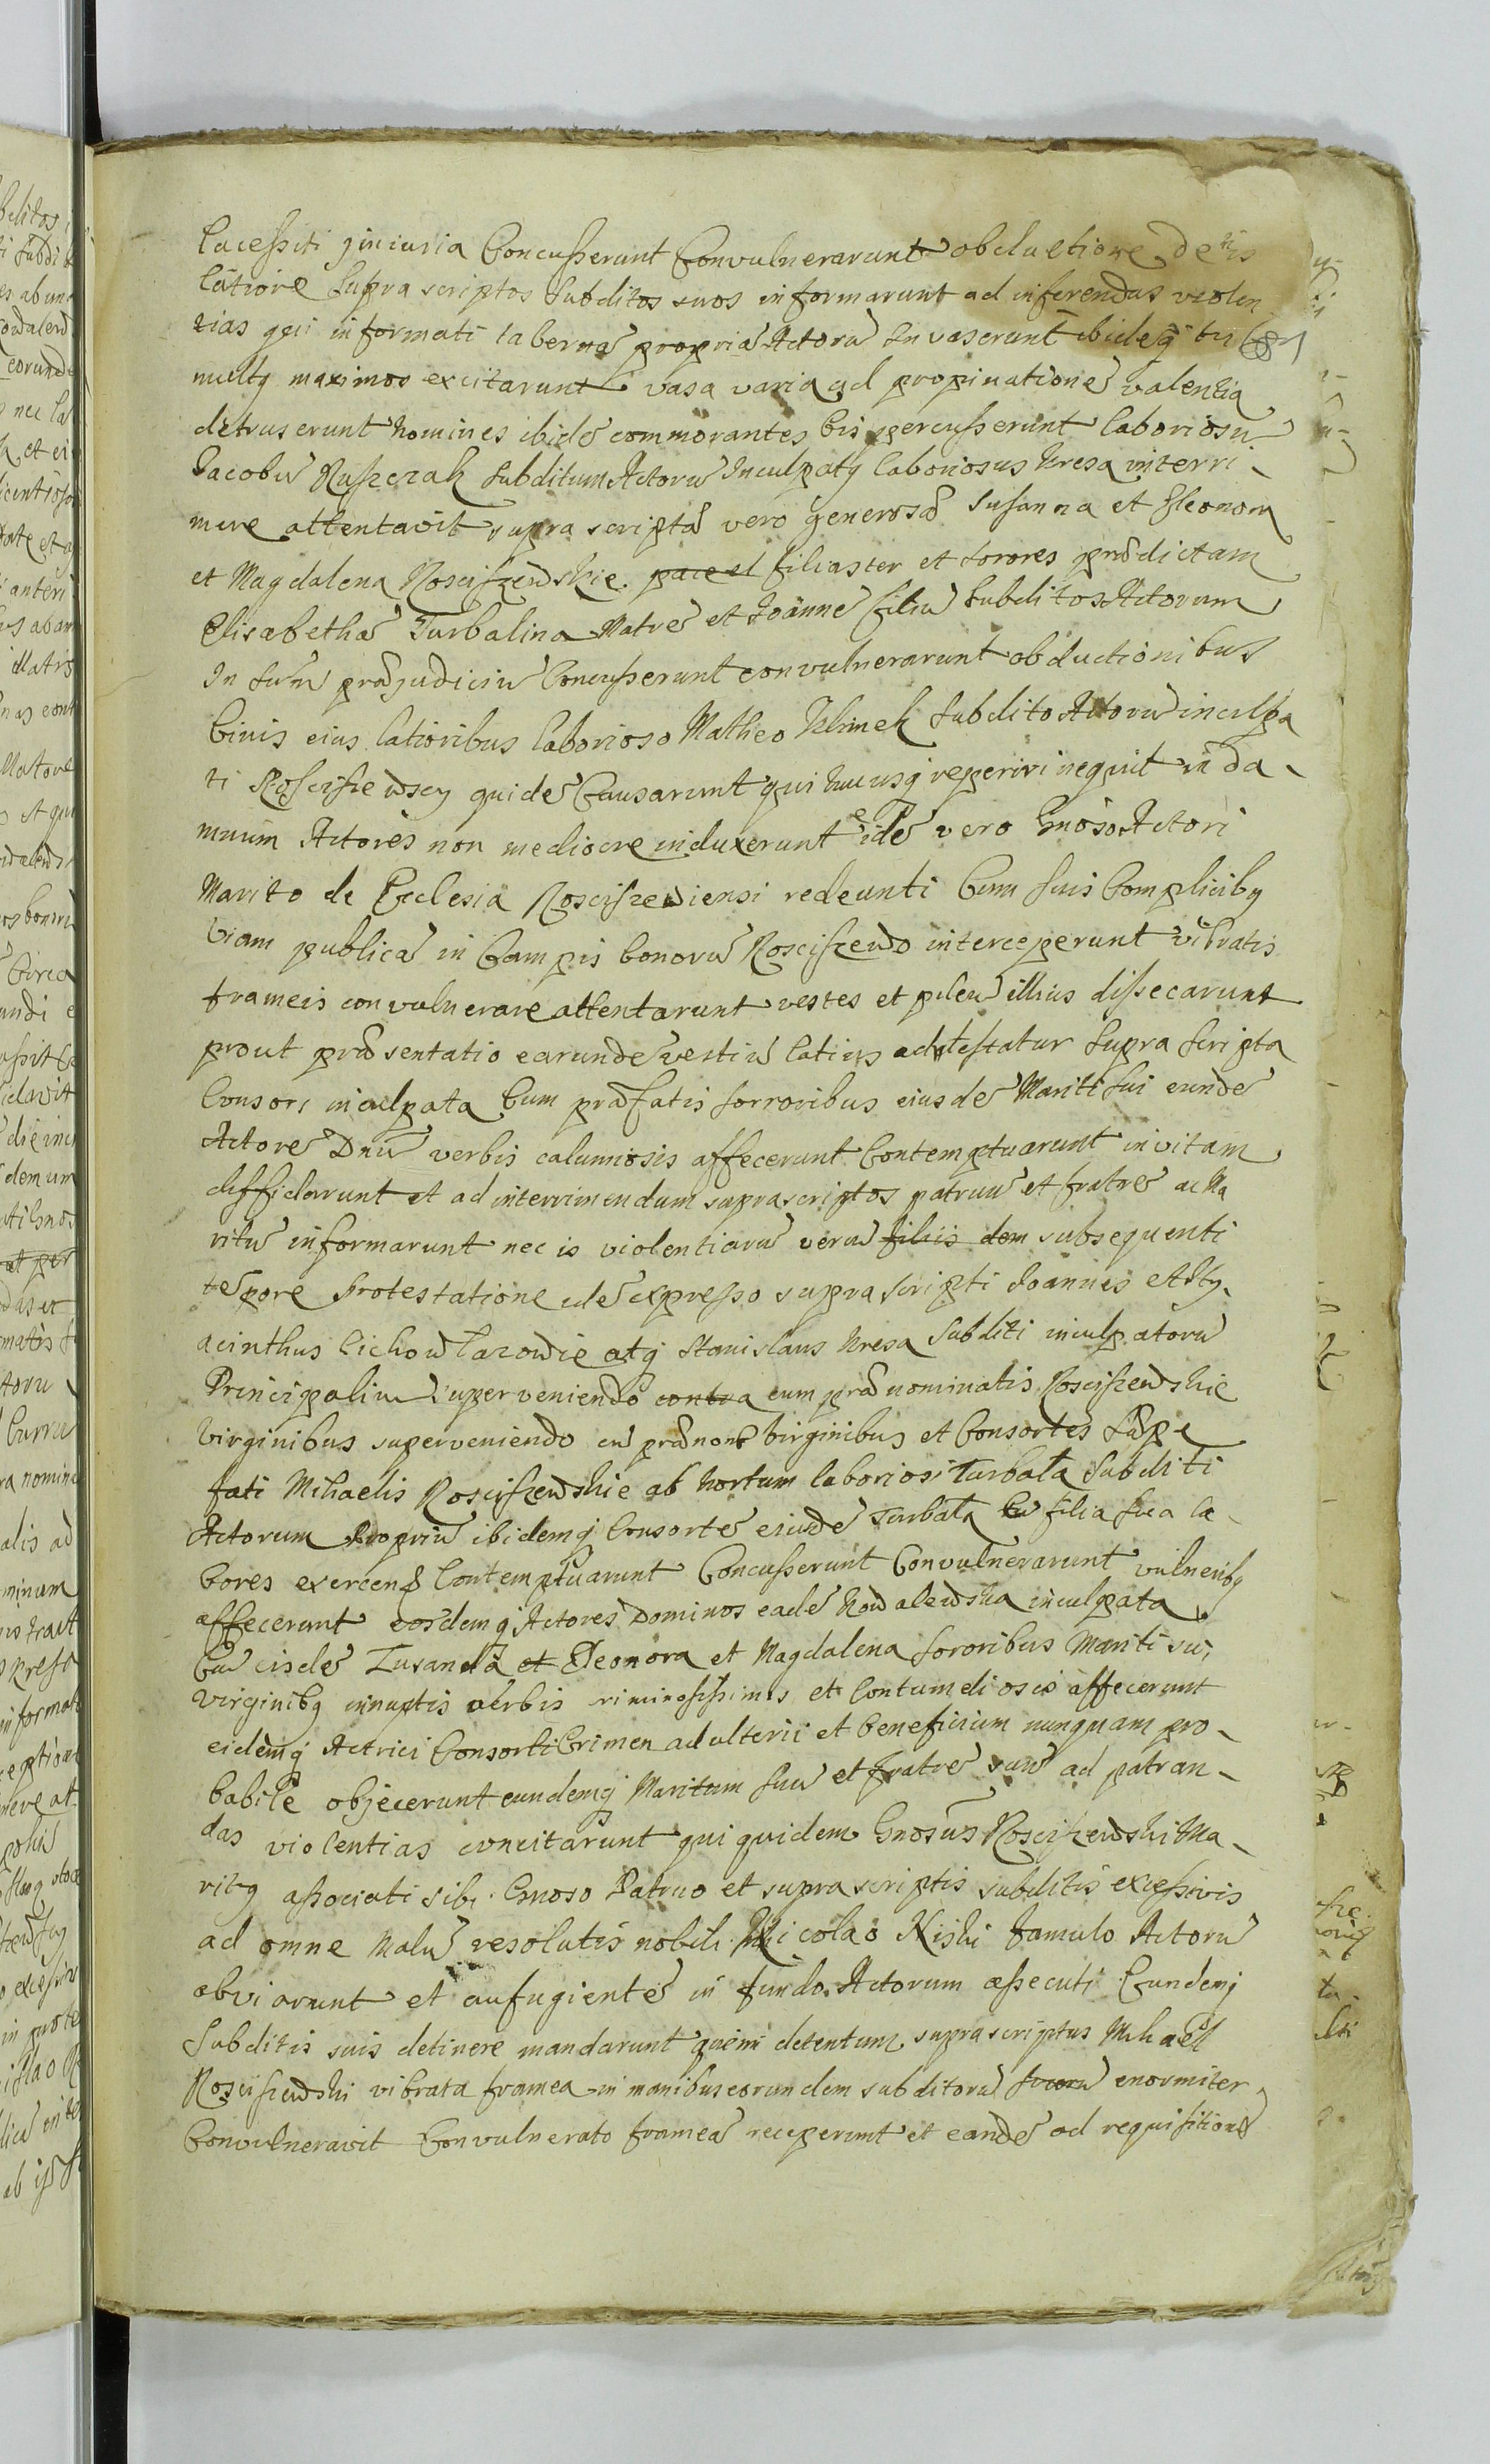 lacessiti injuria Concusserunt Convulnerarunt obductione de iis
latiore supra scriptos subditos suos informarunt ad inferendas violen
tias qui informati tabernã propriã Actorũ Invaserunt ibidẽq tu
multq maximos excitarunt vasa varia ad propinationẽ valentia
detruserunt homines ibidẽ commorantes bis percusserunt laboriosũ
Jacobũ Ruszczak subditum Actorũ Inculpatq laboriosus Kresa interri-
mere attentavit supra scriptã vero generosã Susanna et Eleonora
et Magdalena Rosciszewskie pace et filiaster et sorores prædictam
Elisabethã Turbalina Matrẽ et Joannẽ filiũ subditos Actorum
In suũ præjudiciũ Concusserunt convulnerarunt obductionibus
binis eius latioribus laborioso Matheo Klimek subdito Actorũ inculpa
ti Rosciszewscy quidẽ Causarunt qui hucusq reperiri nequit in da-
mnum Actores non mediocre induxerunt eidẽ vero Gnoso Actori
Marito de Ecclesia Rosciszewiensi redeunti Cum suis Complicibq
viam publicã in Campis bonorũ Rosciszewo interceperunt vibratis
frameis convulnerare attentarunt vestes et pileũ illius dissecarunt
prout præsentatio earundẽ vestiũ latius adtestatur supra scripta
Consors inculpata Cum præfatis sororibus eiusdẽ Mariti sui eundẽ
Actorẽ Dnũ verbis calumniosis affecerunt Contemptuarunt in vitam
diffidarunt et ad interrimendum suprascriptos patruũ et fratrẽ ac Ma
ritũ informarunt nec is violentiarũ verũ filiis dem subsequenti
tẽpore Protestatione idẽ expresso supra scripti Joannes et Hy-
acinthus Cichow Lazowie atq Stanislaus Kresa subditi inculpatorũ
Principaliũ superveniendo contra cum prænominatis Rosciszewskie
Virginibus superveniendo cũ prænom Virginibus et Consortes sæpe
fati Mihaelis Rosciszewskie ab hortum laboriosi Turbala subditi
Actorum Propriũ ibidemq Consortẽ eiusdẽ Turbala cũ filia sua la-
bores exercens Contemptuarunt Concusserunt Convulnerarunt vulneribq
affecerunt eosdemq Actores Dominos eadẽ Kowalewska inculpata
Cũ eisdẽ Zusanda et Eleonora et Magdalena sororibus Mariti sui
Virginibq innuptis verbis criminosissimis et Contumeliosis affecerunt
eidemq Actrici Consorti Crimen adulterii et beneficium nunquam pro-
babile objecerunt eundemq Maritum suũ et fratrẽ suũ ad patran-
das violentias concitarunt qui quidem Gnosus Rosciszewski Ma-
ritq associati sibi Gnoso Patruo et supra scriptis subditis excessivis
ad omne malũ resolutis nobili Nicolao Niski famulo Actorũ
obviarunt et aufugientẽ in fundo Actorum assecuti Eundemq
Subditis suis detinere mandarunt quem detentum supra scriptus Mihael
Rosciszewski vibrata framea in manibus eorundem subditorũ suorũ enormiter
Convulneravit Convulnerato frameã receperunt et eandẽ ad requisitionẽ